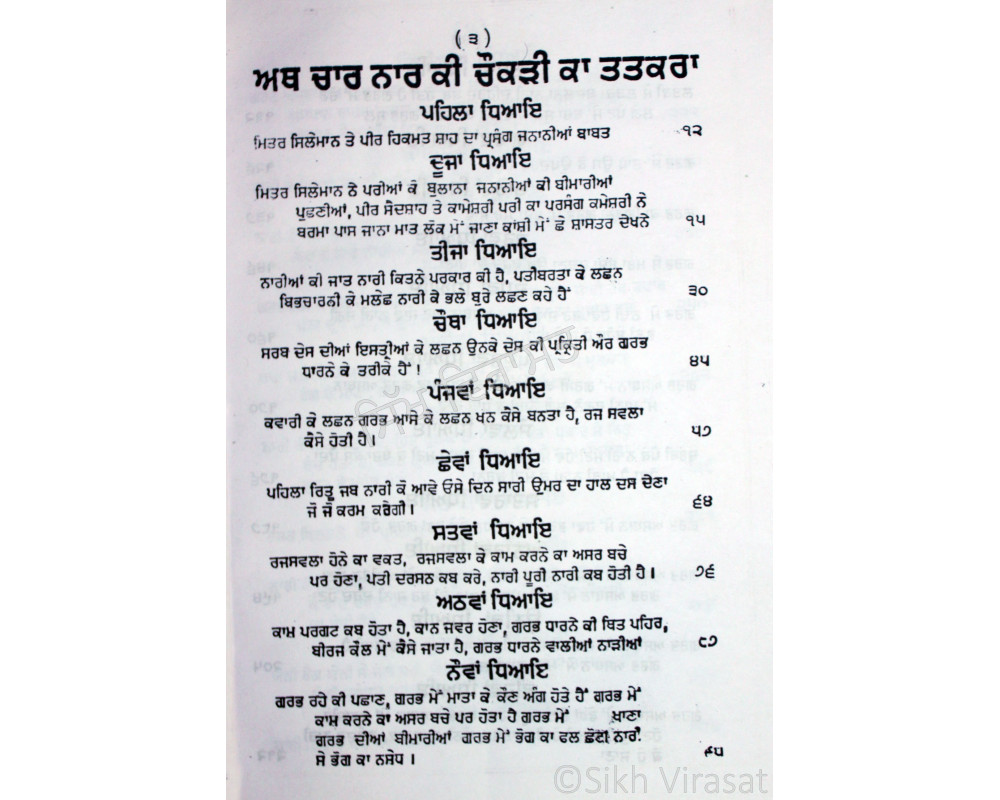 ( ੩ )
ਅਥ ਚਾਰ ਨਾਰ ਕੀ ਚੌਕੜੀ ਕਾ ਤਤਕਰਾ
ਪਹਿਲਾ ਧਿਆਇ
ਮਿਤਰ ਸਿਲੇਮਾਨ ਤੇ ਪੀਰ ਹਿਕਮਤ ਸ਼ਾਹ ਦਾ ਪ੍ਰਸੰਗ ਜਨਾਨੀਆਂ ਬਾਬਤ ੧੨
ਦੂਜਾ ਧਿਆਇ
ਮਿਤਰ ਸਿਲੇਮਾਨ ਨੇ ਪਰੀਆਂ ਕੋ ਬੁਲਾਨਾ ਜਨਾਨੀਆਂ ਕੀ ਬੀਮਾਰੀਆਂ
ਪੁਛਣੀਆਂ, ਪੀਰ ਸੈਦਸ਼ਾਹ ਤੇ ਕਾਮੇਸ਼ਰੀ ਪਰੀ ਕਾ ਪਰਸੰਗ ਕਮੇਸ਼ਰੀ ਨੇ
ਬਰਮਾ ਪਾਸ ਜਾਨਾ ਮਾਤ ਲੋਕ ਮੇਂ ਜਾਣਾ ਕਾਂਸ਼ੀ ਮੇਂ ਛੇ ਸ਼ਾਸਤਰ ਦੇਖਨੇ ੧੫
ਤੀਜਾ ਧਿਆਇ
ਨਾਰੀਆਂ ਕੀ ਜਾਤ ਨਾਰੀ ਕਿਤਨੇ ਪਰਕਾਰ ਕੀ ਹੈ, ਪਤੀਬਰਤਾ ਕੇ ਲਛਨ
ਬਿਭਚਾਰਨੀ ਕੇ ਮਲੇਛ ਨਾਰੀ ਕੇ ਭਲੇ ਬੁਰੇ ਲਛਣ ਕਹੇ ਹੈਂ ੩੦
ਚੌਥਾ ਧਿਆਇ
ਸਰਬ ਦੇਸ ਦੀਆਂ ਇਸਤ੍ਰੀਆਂ ਕੇ ਲਛਨ ਉਨਕੇ ਦੇਸ਼ ਕੀ ਪ੍ਰਕ੍ਰਿਤੀ ਔਰ ਗਰਭ
ਧਾਰਨੇ ਕੇ ਤਰੀਕੇ ਹੈਂ ! ੪੫
ਪੰਜਵਾਂ ਧਿਆਇ
ਕਵਾਰੀ ਕੇ ਲਛਨ ਗਰਭ ਆਸੇ ਕੇ ਲਛਨ ਖਨ ਕੈਸੇ ਬਨਤਾ ਹੈ, ਰਜ ਸਵਲਾ
ਕੈਸੇ ਹੋਤੀ ਹੈ। ੫੭
ਛੇਵਾਂ ਧਿਆਇ
ਪਹਿਲਾ ਰਿਤੂ ਜਬ ਨਾਰੀ ਕੋ ਆਵੇ ਓਸੇ ਦਿਨ ਸਾਰੀ ਉਮਰ ਦਾ ਹਾਲ ਦਸ ਦੇਣਾ
ਜੋ ਜੋ ਕਰਮ ਕਰੇਗੀ। ੬੪
ਸਤਵਾਂ ਧਿਆਇ
ਰਜਸਵਲਾ ਹੋਨੇ ਕਾ ਵਕਤ, ਰਜਸਵਲਾ ਕੇ ਕਾਮ ਕਰਨੇ ਕਾ ਅਸਰ ਬਚੇ
ਪਰ ਹੋਣਾ, ਪਤੀ ਦਰਸਨ ਕਬ ਕਰੇ, ਨਾਰੀ ਪੂਰੀ ਨਾਰੀ ਕਬ ਹੋਤੀ ਹੈ। ੭੬
ਅਠਵਾਂ ਧਿਆਇ
ਕਾਮ ਪਰਗਟ ਕਬ ਹੋਤਾ ਹੈ, ਕਾਨ ਜਵਰ ਹੋਣਾ, ਗਰਭ ਧਾਰਨੇ ਕੀ ਥਿਤ ਪਹਿਰ,
ਬੀਰਜ ਕੌਲ ਮੇਂ ਕੈਸੇ ਜਾਤਾ ਹੈ, ਗਰਭ ਧਾਰਨੇ ਵਾਲੀਆਂ ਨਾੜੀਆਂ ੮੭
ਨੌਵਾਂ ਧਿਆਇ
ਗਰਭ ਰਹੇ ਕੀ ਪਛਾਣ, ਗਰਭ ਮੇਂ ਮਾਤਾ ਕੇ ਕੌਣ ਅੰਗ ਹੋਤੇ ਹੈਂ ਗਰਭ ਮੇਂ
ਕਾਮ ਕਰਨੇ ਕਾ ਅਸਰ ਬਚੇ ਪਰ ਹੋਤਾ ਹੈ ਗਰਭ ਮੇਂ ਖਾਣਾ
ਗਰਭ ਦੀਆਂ ਬੀਮਾਰੀਆਂ ਗਰਭ ਮੇਂ ਭੋਗ ਕਾ ਵਲ ਛੋਟੀ ਨਾਰੀ
ਸੇ ਭੋਗ ਕਾ ਨਸੇਧ। ੯੫
ਸਿੱਖ ਵਿਰਾਸਤ
©Sikh Virasat